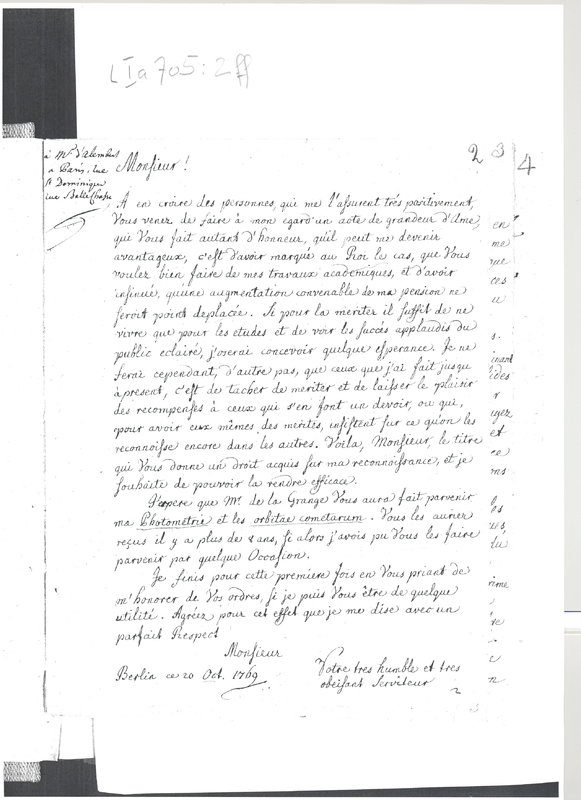 L I a 705 : 2 ff
2 3 4
à Mr. d'Alembert
a Paris, rue
St Dominique
rue Belle Chasse
Monsieur!
A en croire des personnes, qui me l'assurent trés positivement,
Vous venez de faire à mon egard un acte de grandeur d'Ame,
qui Vous fait autant d'honneur, qu'il peut me devenir
avantageux, c'est d'avoir marqué au Roi le cas, que Vous
voulez bien faire de mes travaux academiques, et d'avoir
insinué, qu'une augmentation convenable de ma pension ne
seroit point deplacée. Si pour la meriter il suffit de ne
vivre que pour les etudes et de voir les succés applaudis du
public eclairé, j'oserai concevoir quelque esperance. Je ne
ferai cependant, d'autre pas, que ceux que j'ai fait jusqu
àpresent, c'est de tacher de meriter et de laisser le plaisir
des recompenses à ceux qui s'en font un devoir, ou qui,
pour avoir eux mêmes des merites, insistent sur ce qu'on les
reconnoisse encore dans les autres. Voila, Monsieur, le titre
qui Vous donne un droit acquis sur ma reconnoissance, et je
souhaite de pouvoir la rendre efficace.
J'espere que Mr. de la Grange Vous aura fait parvenir
ma Photometrie et les orbitae cometarum. Vous les auriez
reçus il y a plus de 8 ans, si alors j'avois pu Vous les faire
parvenir par quelque Occasion.
Je finis pour cette premiere fois en Vous priant de
m'honorer de Vos ordres, si je puis Vous être de quelque
utilité. Agréez pour cet effet que je me dise avec un
parfait Respect
Monsieur
Berlin ce 20 Oct. 1769
Votre tres humble et tres
obeisant Serviteur
en
me
que
ces
u
s.
inant
ides
r
ugez
et
ce
ms
los
tu
rime
re
c
n